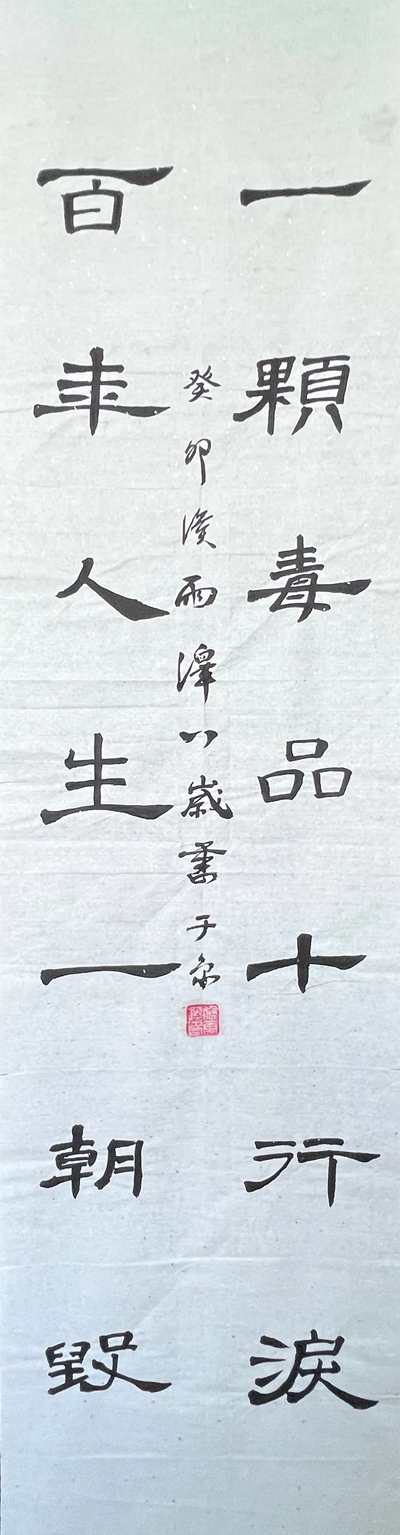 一顆毒品十行淚
百年人生一朝毀
癸卯雨澤八歲書于京